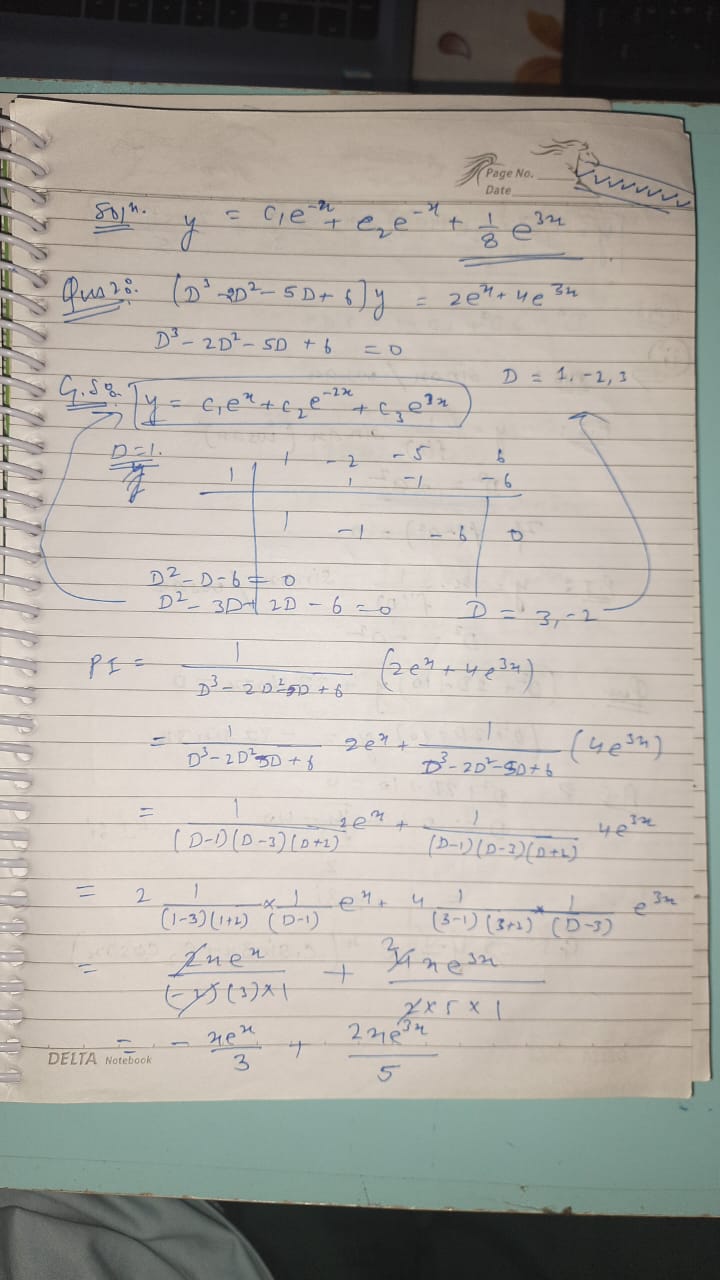 Page No.
Date
Soln. y = c₁e⁻ˣ + c₂e⁻ˣ + 1/8 e³ˣ
Ques 2: (D³ -2D² - 5D + 6)y = 2eˣ + 4e³ˣ
D³ - 2D² - 5D + 6 = 0
D = 1, -2, 3
G.S. y = c₁eˣ + c₂e⁻²ˣ + c₃e³ˣ
D=1.
1 -2 -5 6
1 1 -1 -6
1 -1 -6 0
D² - D - 6 = 0
D² - 3D + 2D - 6 = 0 D = 3, -2
PI = 1/(D³ - 2D² - 5D + 6) (2eˣ + 4e³ˣ)
= 1/(D³ - 2D² - 5D + 6) 2eˣ + 1/(D³ - 2D² - 5D + 6) (4e³ˣ)
= 1/((D-1)(D-3)(D+2)) 2eˣ + 1/((D-1)(D-3)(D+2)) 4e³ˣ
= 2 1/((1-3)(1+2)) × 1/(D-1) eˣ + 4 1/((3-1)(3+2)) × 1/(D-3) e³ˣ
= 2xeˣ/((-2)(3)×1) + 2 4xe³ˣ/(2×5×1)
= - xeˣ/3 + 2xe³ˣ/5
DELTA Notebook